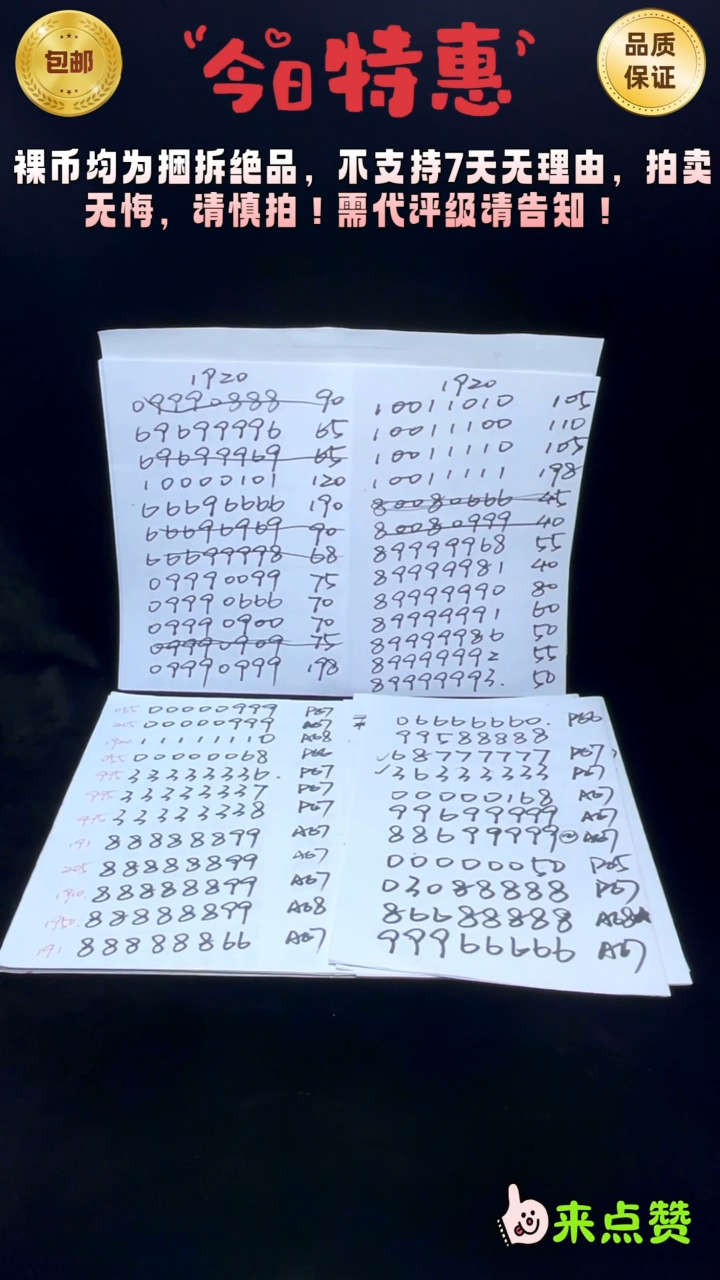 包邮
今日特惠
品质
保证
裸币均为捆拆绝品，不支持7天无理由，拍卖
无悔，请慎拍！需代评级请告知！
1920
09990888 90
69699996 65
69699969 65
10000101 120
66696666 190
66696969 90
66699998 68
09990099 75
09990666 70
09990900 70
09990909 75
09990999 198
1920
10011010 105
10011100 110
10011110 105
10011111 198
80080666 45
80080999 40
89999968 55
89999981 40
89999990 80
89999991 60
89999986 50
89999992 55
89999993. 50
055 00000999 P67
205 00000999 A67
1920 11111110 A68
055 00000068 P66
995 33333336. P67
995 33333337 P67
995 33333338 P67
191 88888899 A67
205 88888899 A67
1910. 88888899 A67
1950. 88888899 A68
191 88888866 A67
06666660. P66
99588888
✓68777777 P67
✓36333333 P67
00000168 A67
99699999 A67
88699999 A67
00000050 P65
03088888 P67
86688888 A68★
99966666 A67
来点赞